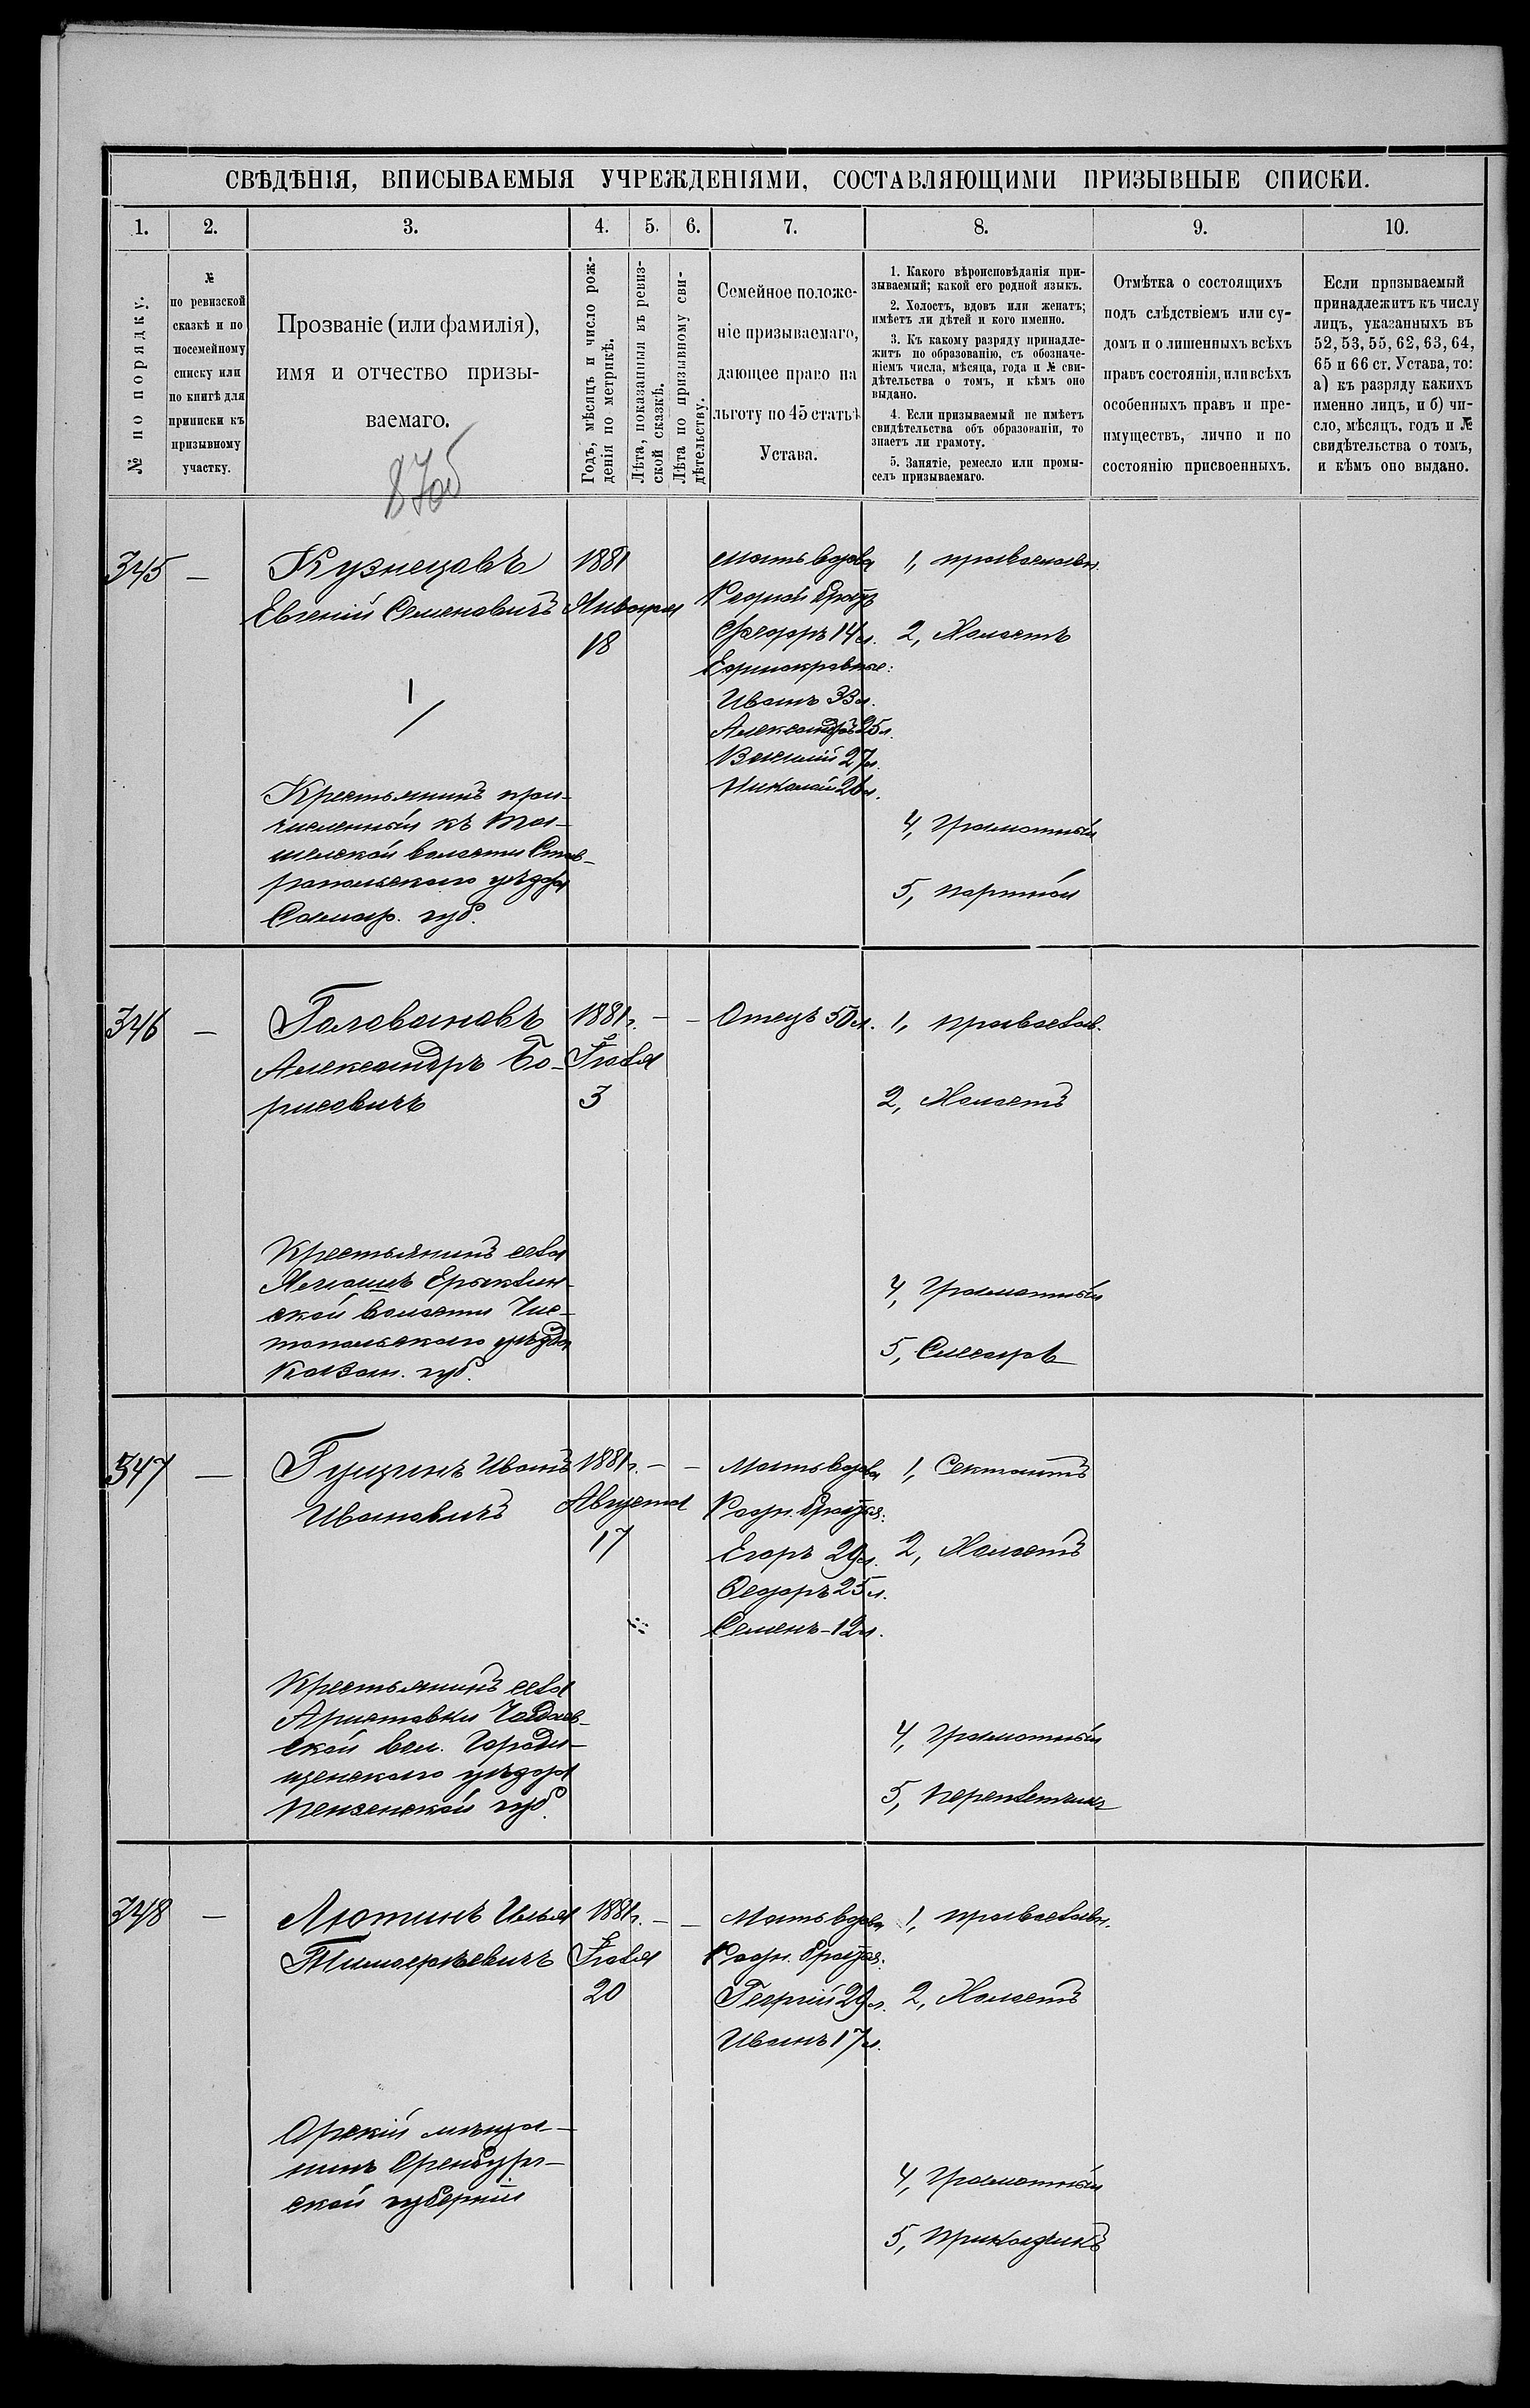 СВѢДѢНІЯ, ВПИСЫВАЕМЫЯ УЧРЕЖДЕНІЯМИ, СОСТАВЛЯЮЩИМИ ПРИЗЫВНЫЕ СПИСКИ.
1.
2.
3.
4.
5.
6.
7.
8.
9.
10.
№ по порядку.
№
по ревизской
сказкѣ и по
посемейному
списку или
по книгѣ для
приписки къ
призывному
участку.
Прозваніе (или фамилія),
имя и отчество призы-
ваемаго.
Годъ, мѣсяцъ и число рож-
денія по метрикѣ.
Лѣта, показанныя въ ревиз-
ской сказкѣ.
Лѣта по призывному сви-
дѣтельству.
Семейное положе-
ніе призываемаго,
дающее право на
льготу по 45 статьѣ
Устава.
1. Какого вѣроисповѣданія при-
зываемый; какой его родной языкъ.
2. Холостъ, вдовъ или женатъ;
имѣетъ ли дѣтей и кого именно.
3. Къ какому разряду принадле-
житъ по образованію, съ обозначе-
ніемъ числа, мѣсяца, года и № сви-
дѣтельства о томъ, и кѣмъ оно
выдано.
4. Если призываемый не имѣетъ
свидѣтельства объ образованіи, то
знаетъ ли грамоту.
5. Занятіе, ремесло или промы-
селъ призываемаго.
Отмѣтка о состоящихъ
подъ слѣдствіемъ или су-
домъ и о лишенныхъ всѣхъ
правъ состоянія, или всѣхъ
особенныхъ правъ и пре-
имуществъ, лично и по
состоянію присвоенныхъ.
Если призываемый
принадлежитъ къ числу
лицъ, указанныхъ въ
52, 53, 55, 62, 63, 64,
65 и 66 ст. Устава, то:
а) къ разряду какихъ
именно лицъ, и б) чи-
сло, мѣсяцъ, годъ и №
свидѣтельства о томъ,
и кѣмъ оно выдано.
345 —
Кузнецовъ
Евгеній Семеновичъ
Крестьянинъ при-
численный къ
волости Став-
ропольскаго уѣзда
Самар. губ.
1881
Января
18
Мать вдова
Родной братъ
Федоръ 14 л.
Единокровные:
Иванъ 33 л.
Александръ 25 л.
Василій 27 л.
Николай 20 л.
1, православн.
2, Холостъ
4, Грамотный
5, портной
346 —
Головановъ
Александръ Бо-
рисовичъ
Крестьянинъ села
Ерыклин-
ской волости Чис-
топольскаго уѣзда
Казан. губ.
1881 г. — —
Іюля
3
Отецъ 50 л.
1, православ.
2, Холостъ
4, Грамотный
5, Слесарь
347 —
Гущинъ Иванъ
Ивановичъ
Крестьянинъ села
Аристовки Чадаев-
ской вол. Городи-
щенскаго уѣзда
Пензенской губ.
1881 г. — —
Августа
17
Мать вдова
Родн. братья:
Егоръ 29 л.
Федоръ 25 л.
Семенъ - 12 л.
1, Сектантъ
2, Холостъ
4, Грамотный
5, Переплетчикъ
348 —
Лютинъ Илья
Тимофѣевичъ
Орскій мѣща-
нинъ Оренбург-
ской губерніи
1881 г. — —
Іюля
20
Мать вдова
Родн. братья:
Георгій 29 л.
Иванъ 17 л.
1, православн.
2, Холостъ
4, Грамотный
5, Приказчикъ